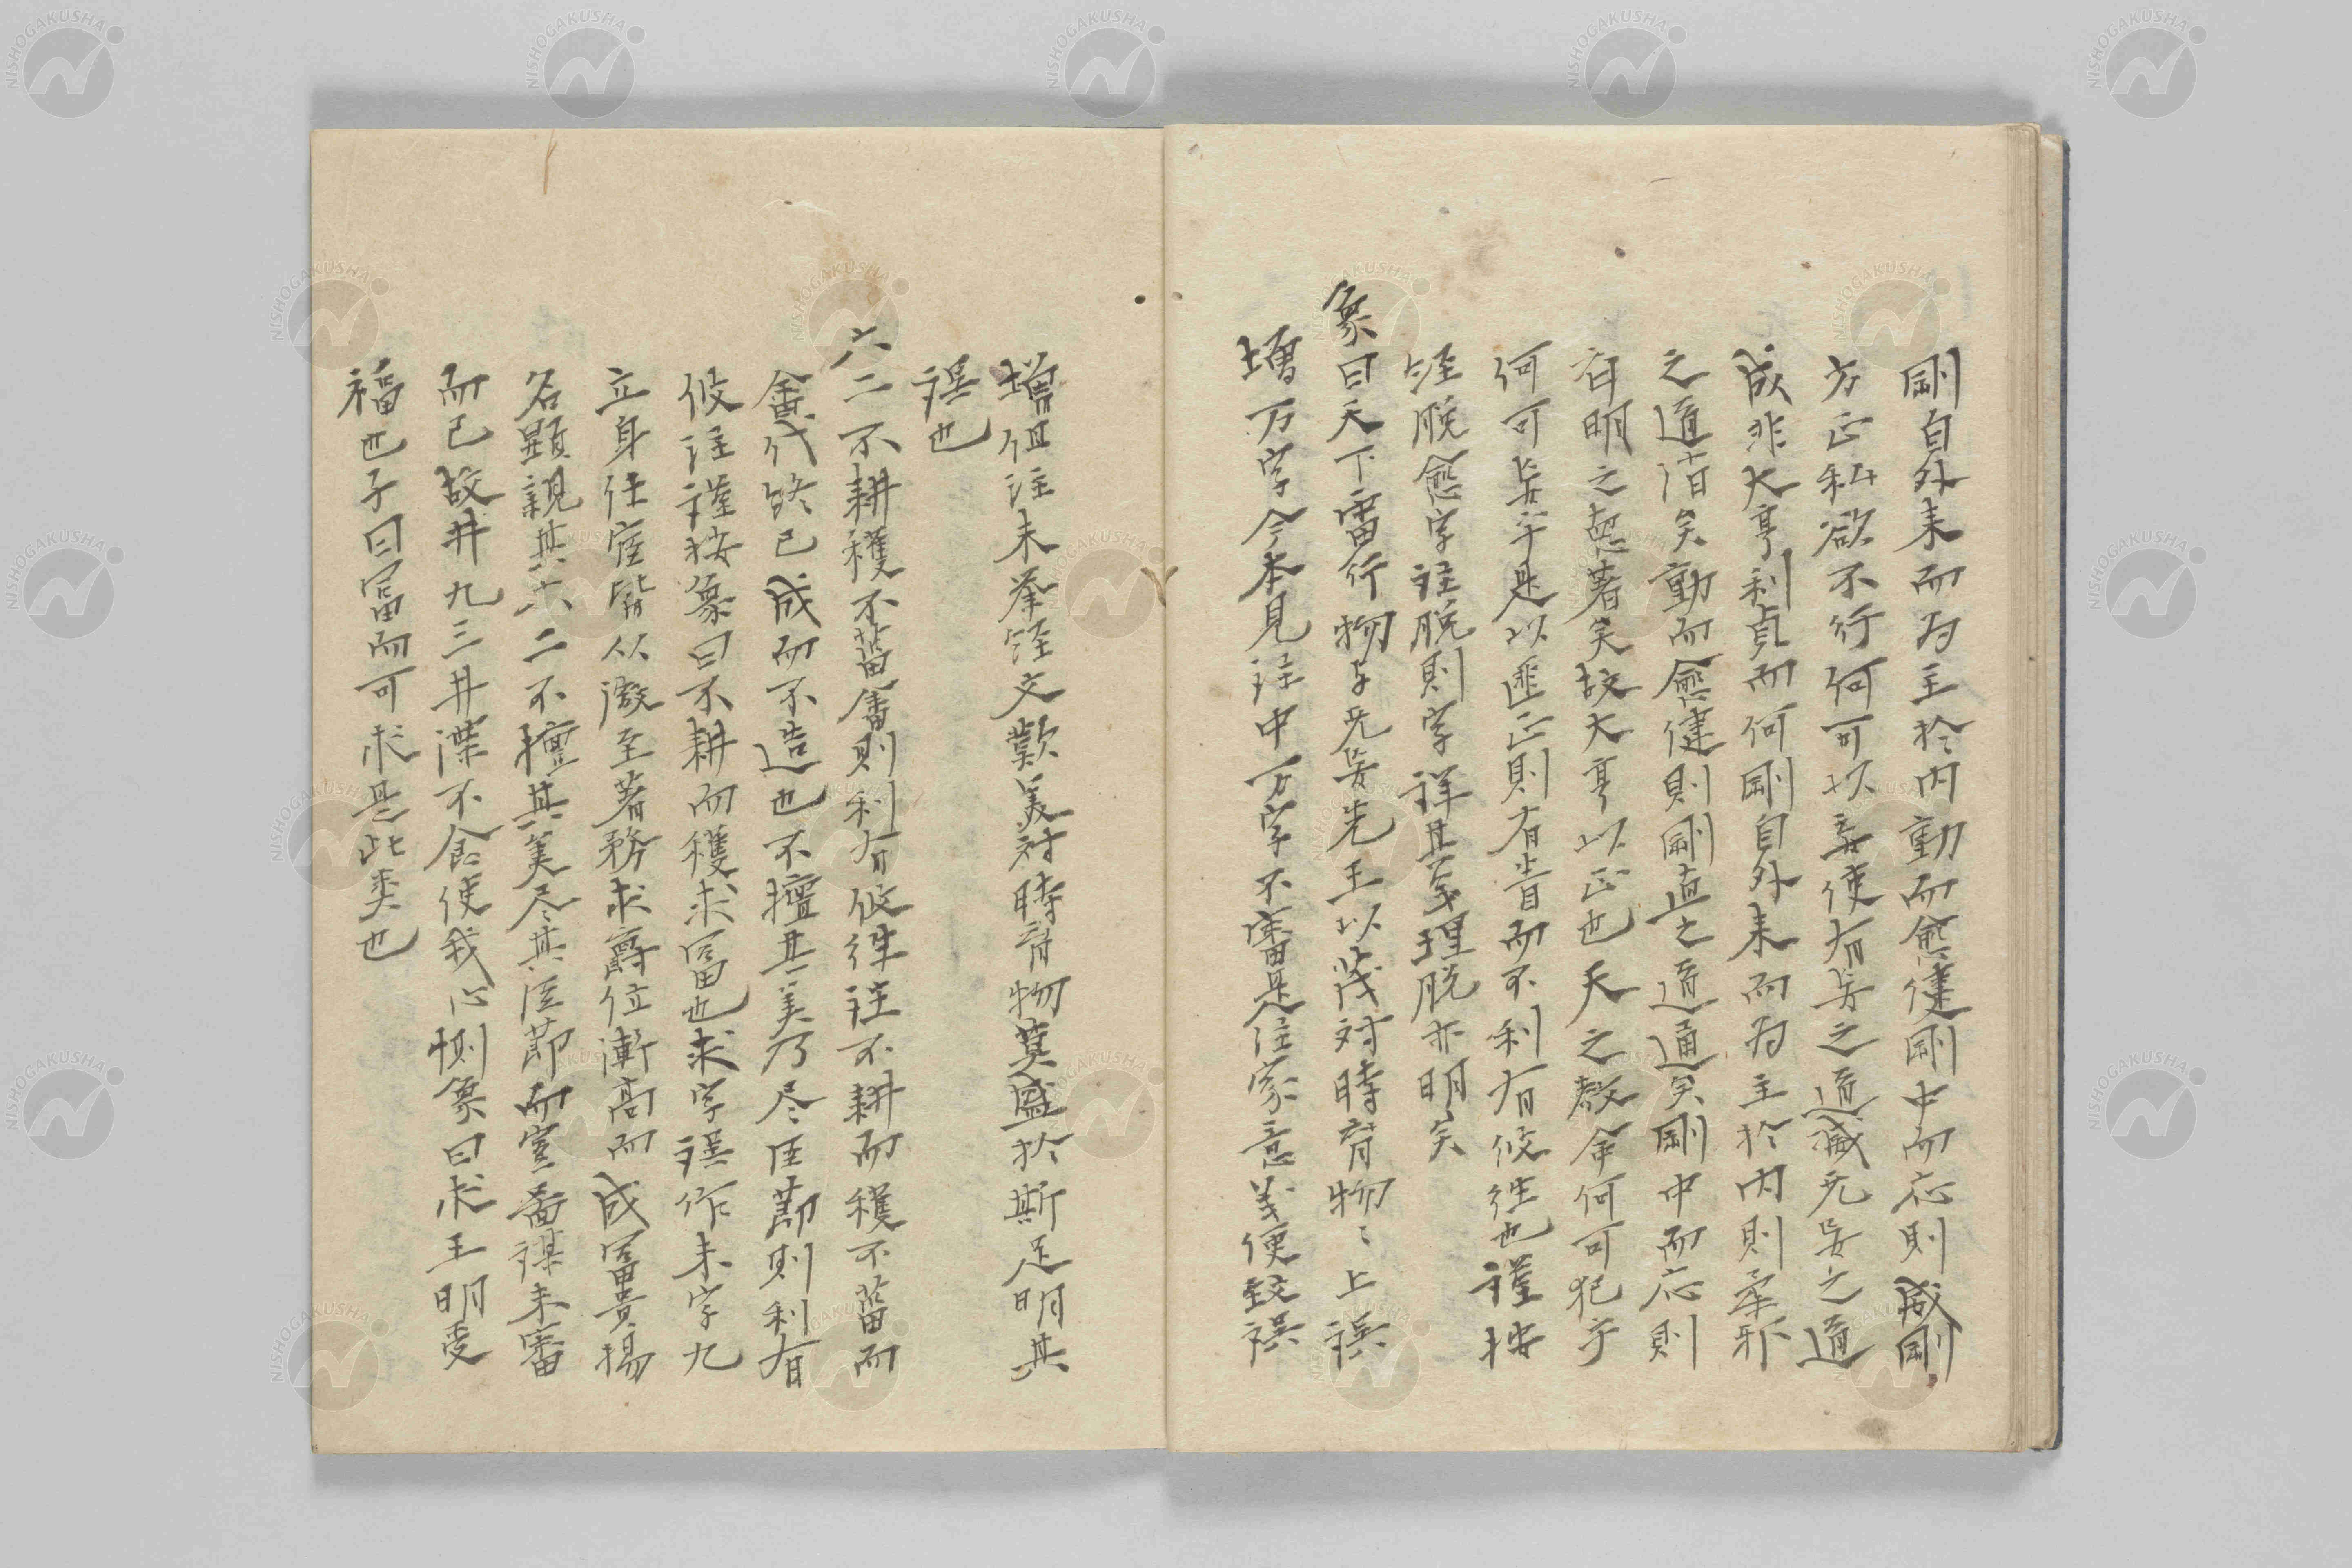 剛自外来而为主於内動而愈健剛中而応則威剛
方正私欲不行何可以妄使有妄之道滅无妄之道
成非大亨利貞而何剛自外来而为主於内則柔邪
之道消矣動而愈健則剛直之道通矣剛中而応則
斉明之德著矣故大亨以正也天之教命何可犯乎
何可妄乎是以匪正則有眚而不利有攸往也謹按
経脱愈字註脱則字詳其義理脱亦明矣
象曰天下雷行物与无妄先王以茂対時育物〻上誤
増万字今本見注中万字不審是注家意義便致誤
増但注未挙経文歎美対時育物莫盛於斯足明其
誤也
六二不耕穫不菑畬則利有攸往註不耕而穫不菑而
畬代終已成而不造也不擅其美乃尽臣莭則利有
攸往謹按象曰不耕而穫求冨也求字誤作未字九
立身仕宦皆从微至著務求爵位漸高而成冨貴揚
名顕親其六二不擅其美尽其臣莭而
而已故井九三井渫不食使我心惻象曰求王明受
福也子曰冨而可求是此类也